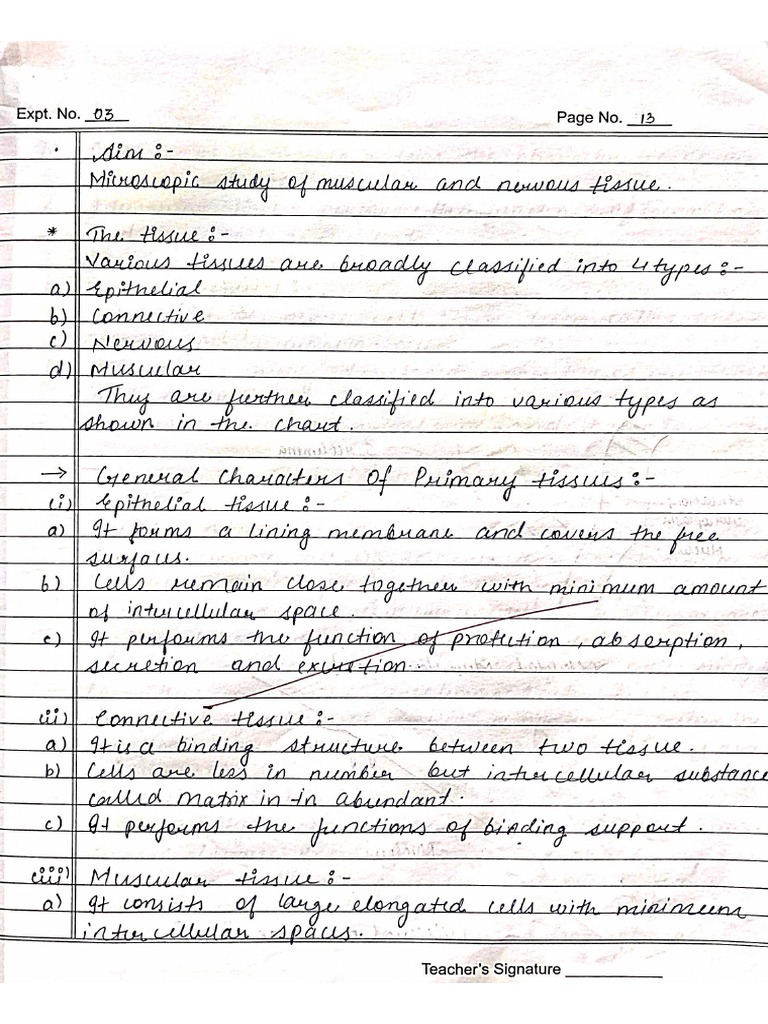 Expt. No. 03
Page No. 13
• Aim :-
Microscopic study of muscular and nervous tissue.
* The tissue :-
Various tissues are broadly classified into 4 types :-
a) Epithelial
b) Connective
c) Nervous
d) Muscular
They are further classified into various types as
shown in the chart.
→ General Characters of Primary tissues :-
(i) Epithelial tissue :-
a) It forms a lining membrane and covers the free
surfaces.
b) Cells remain close together with minimum amount
of intercellular space.
c) It performs the function of protection, absorption,
secretion and excretion.
ii) Connective tissue :-
a) It is a binding structure between two tissue.
b) Cells are less in number but intercellular substance
called matrix in in abundant.
c) It performs the functions of binding support.
iii) Muscular tissue :-
a) It consists of large elongated cells with minimum
intercellular spaces.
Teacher's Signature